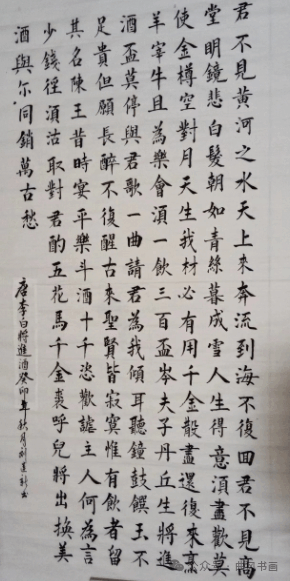 君不見黃河之水天上來奔流到海不復回君不見髙
堂明鏡悲白髮朝如青絲暮成雪人生得意須盡歡莫
使金樽空對月天生我材必有用千金散盡還復來烹
羊宰牛且為樂會須一飲三百盃岑夫子丹丘生將進
酒盃莫停與君歌一曲請君為我傾耳聽鐘鼓饌玉不
足貴但願長醉不復醒古來聖賢皆寂寞惟有飲者留
其名陳王昔時宴平樂斗酒十千恣歡謔主人何為言
少錢徑須沽取對君酌五花馬千金裘呼兒將出換美
酒與尔同銷萬古愁
唐李白將進酒癸卯年秋月劉道書
公众号 书画